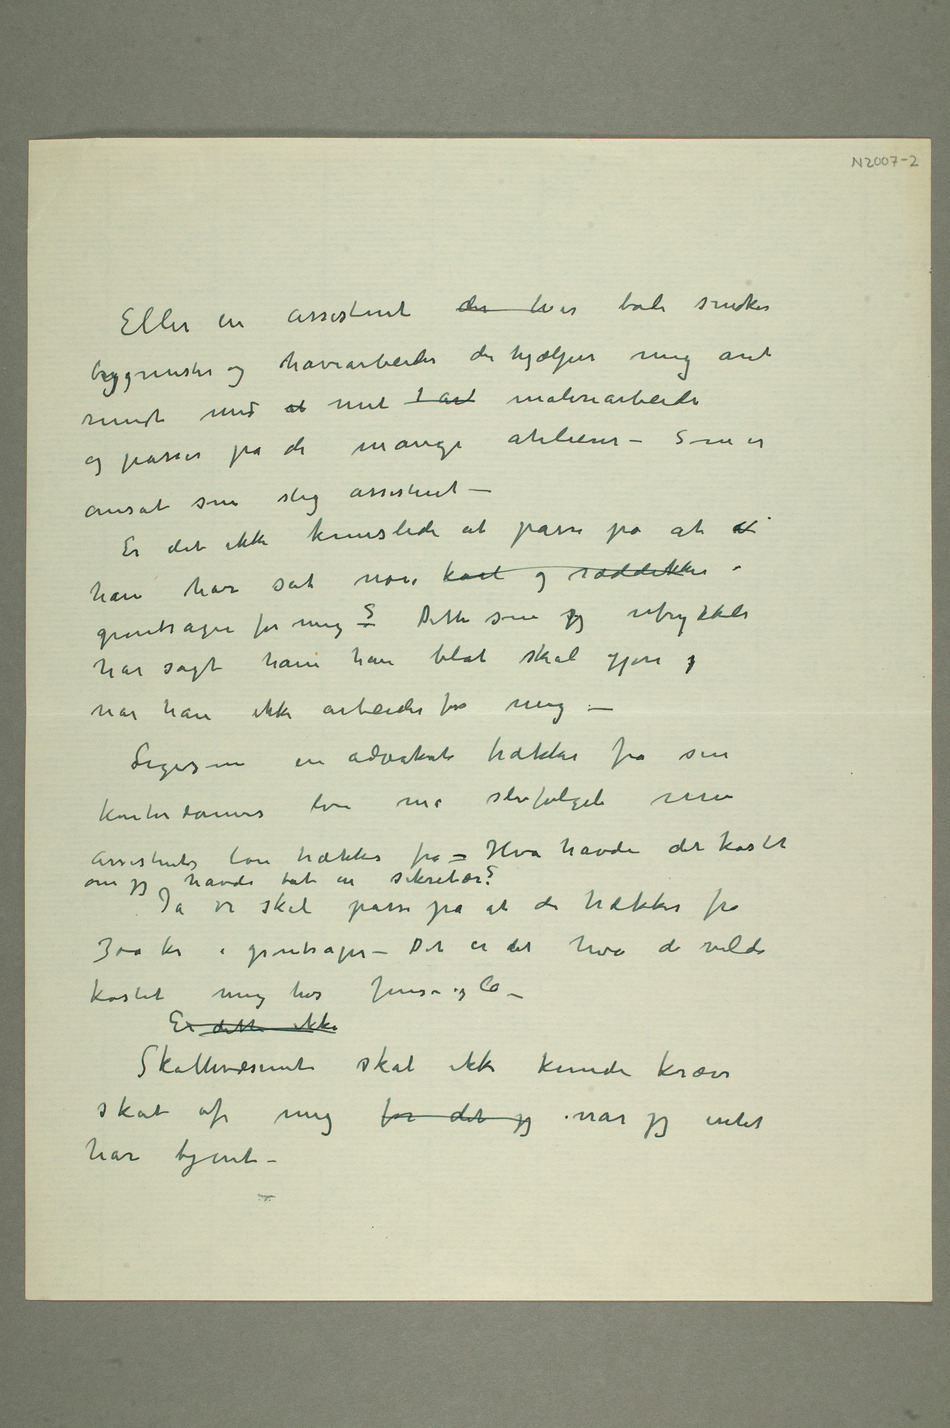 N2007-2
Eller en assistent der hver både snedker
bygmester og havearbeider der hjælper mig ant
rundt med at mit t art malerarbeide
og passer på de mange atelierer – Som er
ansat som slig assistent –
Er det ikke at passe på at at
han har sat noe kaal og ræddikker
grøntsager for mig – ? Dette som jeg utrykkeli
har sagt ham han blot skal gjøre
når han ikke arbeider for mig –
Ligesom en advokat trækker fra sin
kontordames løn må selvfølgeli min
assistents løn trækkes fra – Hva havde det kostet
om jeg havde tat en sekretær?
Ja vi skal passe på at de trækker fra
300 kr i grøntsager – Det er det hva de vilde
kostet mig hos Jensen og Co –
Er dette ikke
Skattevæsenet skal ikke kunde kræve
skat af mig for det jeg når jeg intet
har tjent –